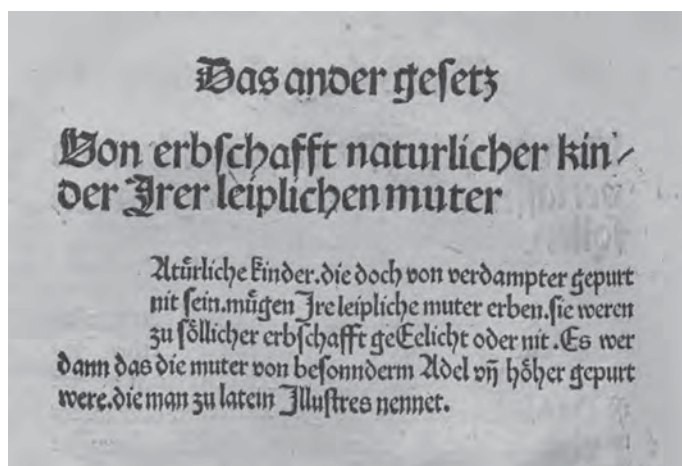 Das ander gesetz
Von erbschafft naturlicher kin-
der Irer leiplichen muter
Atürliche kinder.die doch von verdampter gepurt
nit sein.mügen Ire leipliche muter erben.sie weren
zu söllicher erbschafft geEelicht oder nit. Es wer
dann das die muter von besonnderm Adel vñ höher gepurt
were.die man zu latein Illustres nennet.